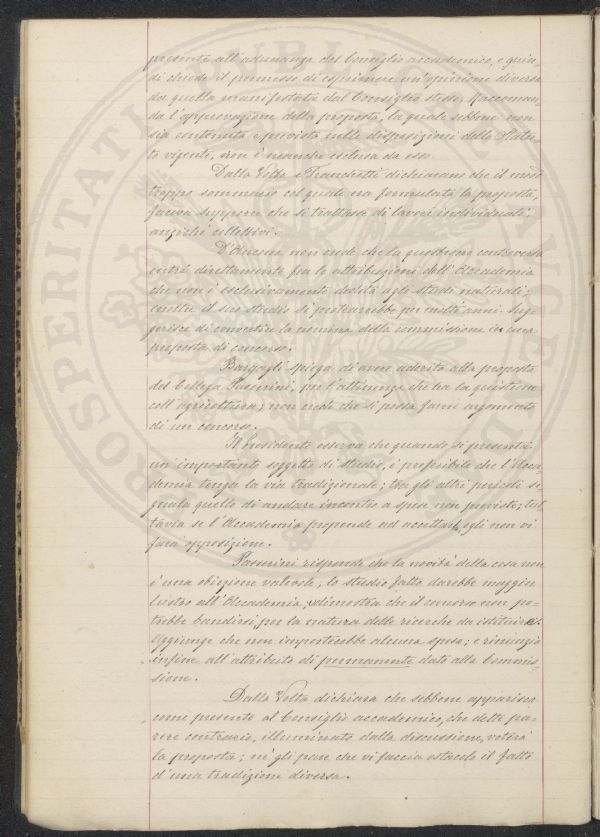 presente all'adunanza del Consiglio accademico, e quin-
di chiede il permesso di esprimere un'opinione diversa
da quella manifestata dal Consiglio stesso. Raccoman-
da l'approvazione della proposta, la quale sebbene non
sia contenuta e prevista nelle disposizioni dello Statu-
to vigente, non è neanche esclusa da esse.
Dalla Volta e Franchetti dichiarano che il modo
troppo sommario col quale era formulata la proposta,
faceva supporre che si trattasse di lavori individuali
anziché collettivi.
D'Ancona non crede che la questione controversa
entri direttamente fra le attribuzioni dell'Accademia
che non è esclusivamente dedita agli studi naturali;
inoltre il suo studio si protrarrebbe per molti anni. Sug-
gerisce di convertire la nomina della commissione in una
proposta di concorso.
Bargagli spiega di avere aderito alla proposta
del Collega Passerini, per l'attinenza che ha la questione
coll'agricoltura; non crede che si possa farne argomento
di un concorso.
Il Presidente osserva che quando si presenta
un importante soggetto di studio, è preferibile che l'Acca-
demia tenga la via tradizionale; tra gli altri pericoli se-
gnala quello di andare incontro a spese non previste; tut-
tavia se l'Accademia propende ad accettarla, egli non vi
farà opposizione.
Passerini risponde che la novità della cosa non
è una obiezione valevole, lo studio fatto darebbe maggior
lustro all'Accademia; dimostra che il concorso non po-
trebbe bandirsi, per la natura delle ricerche da istituirsi.
Aggiunge che non importerebbe alcuna spesa; e rinunzia
infine all'attributo di permanente dato alla Commis-
sione.
Dalla Volta dichiara che sebbene apparisca
come presente al Consiglio accademico, che dette pa-
rere contrario, illuminato dalla discussione, voterà
la proposta; né gli pare che vi faccia ostacolo il fatto
d'una tradizione diversa.
PROSPERITATI PUBLICAE AUGENDAE